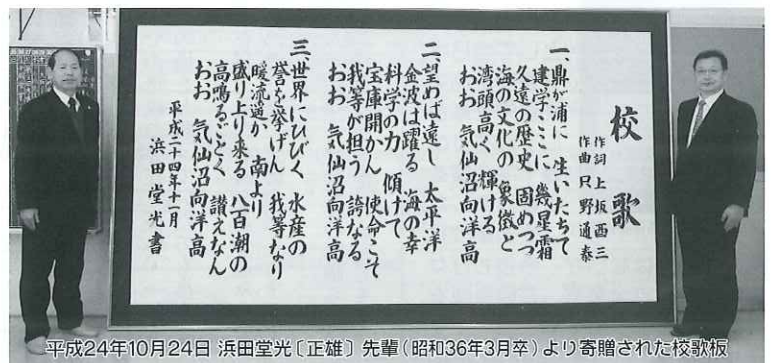 校歌
作詞 上坂酉三
作曲 只野通泰
一、鼎が浦に 生いたちて
建学ここに 幾星霜
久遠の歴史 固めつつ
海の文化の 象徴と
湾頭高く 輝ける
おお 気仙沼向洋高
二、望めば遠し 太平洋
金波は躍る 海の幸
科学の力 傾けて
宝庫開かん 使命こそ
我等が担う 誇なる
おお 気仙沼向洋高
三、世界にひびく 水産の
誉を挙げん 我等なり
暖流遥か 南より
盛り上り来る 八百潮の
高鳴るごとく 讃えなん
おお 気仙沼向洋高
平成二十四年十一月
浜田堂光書
平成24年10月24日 浜田堂光〔正雄〕先輩(昭和36年3月卒)より寄贈された校歌板